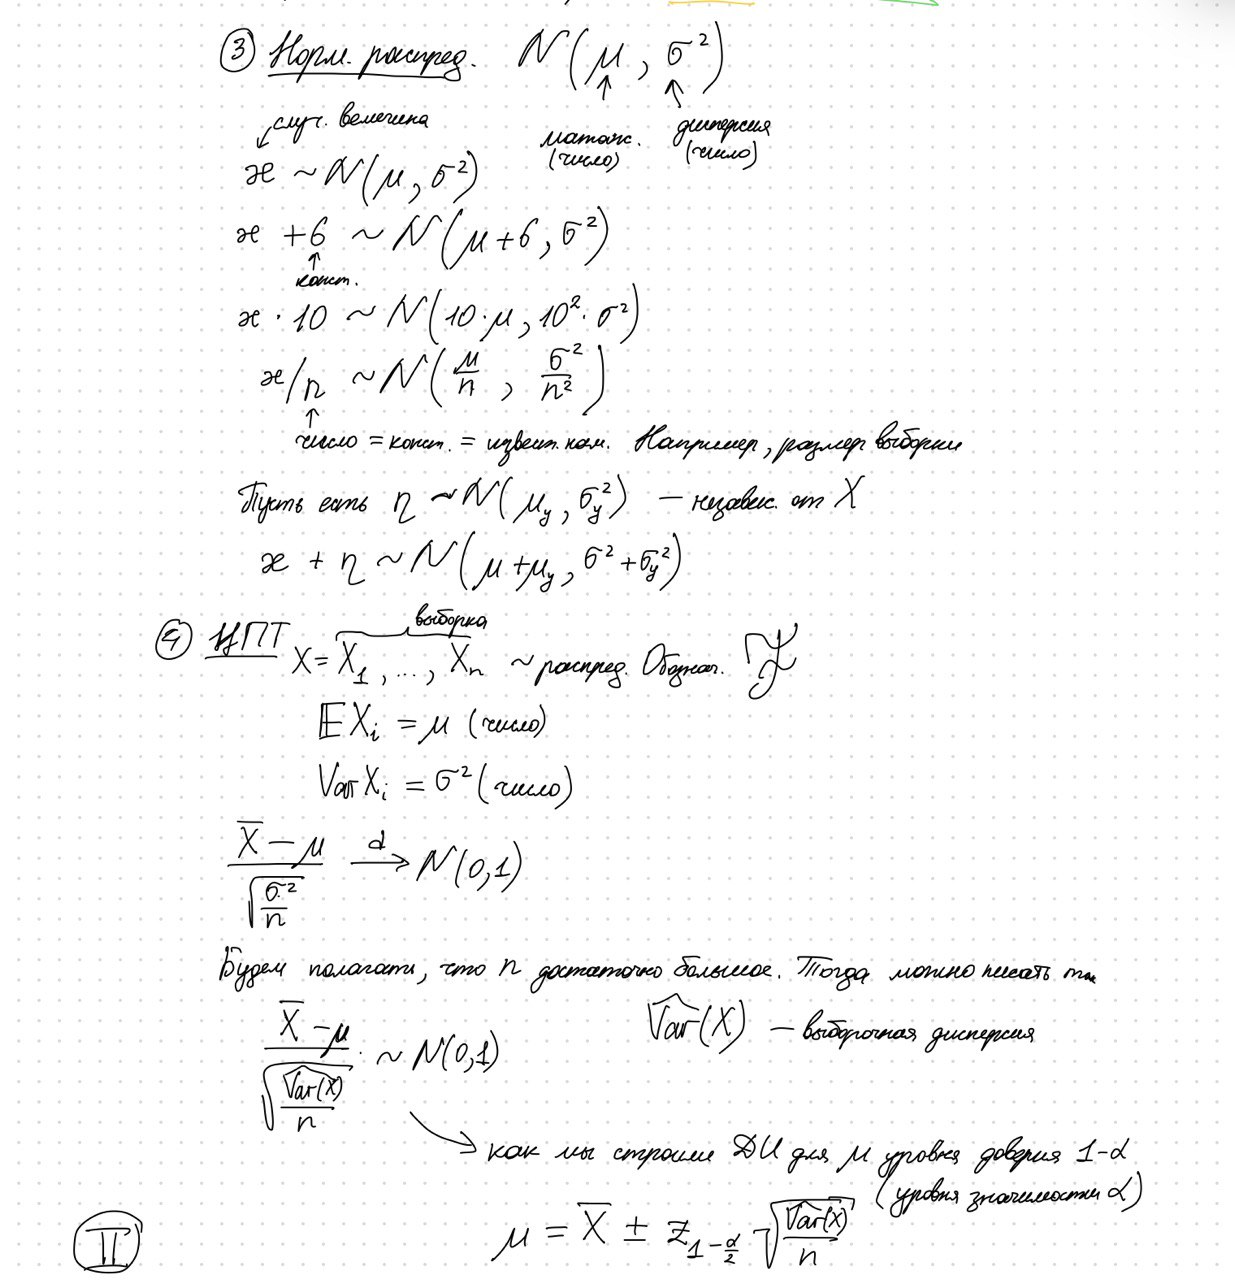 ③ Норм. распред. N(μ, σ²)
↑ ↑
случ. величина
матож. (число) дисперсия (число)
æ ~ N(μ, σ²)
æ + 6 ~ N(μ+6, σ²)
↑
конст.
æ · 10 ~ N(10·μ, 10²·σ²)
æ/n ~ N(μ/n, σ²/n²)
↑
число = конст. = извест. нам. Например, размер выборки
Пусть есть η ~ N(μ_y, σ_y²) – независ. от X
æ + η ~ N(μ+μ_y, σ²+σ_y²)
выборка
④ ЦПТ X = X₁, ..., Xₙ ~ распред. Обознач. ℱ
𝔼Xᵢ = μ (число)
VarXᵢ = σ² (число)
(X̄ – μ)/√(σ²/n) →ᵈ N(0,1)
Будем полагать, что n достаточно большое. Тогда можно писать так
(X̄ – μ)/√(V̂ar(X)/n) ~ N(0,1) V̂ar(X) – выборочная дисперсия
→ как мы строим ДИ для μ уровня доверия 1-α
(уровня значимости α)
Ⅱ μ = X̄ ± z_{1-α/2} √(V̂ar(X)/n)